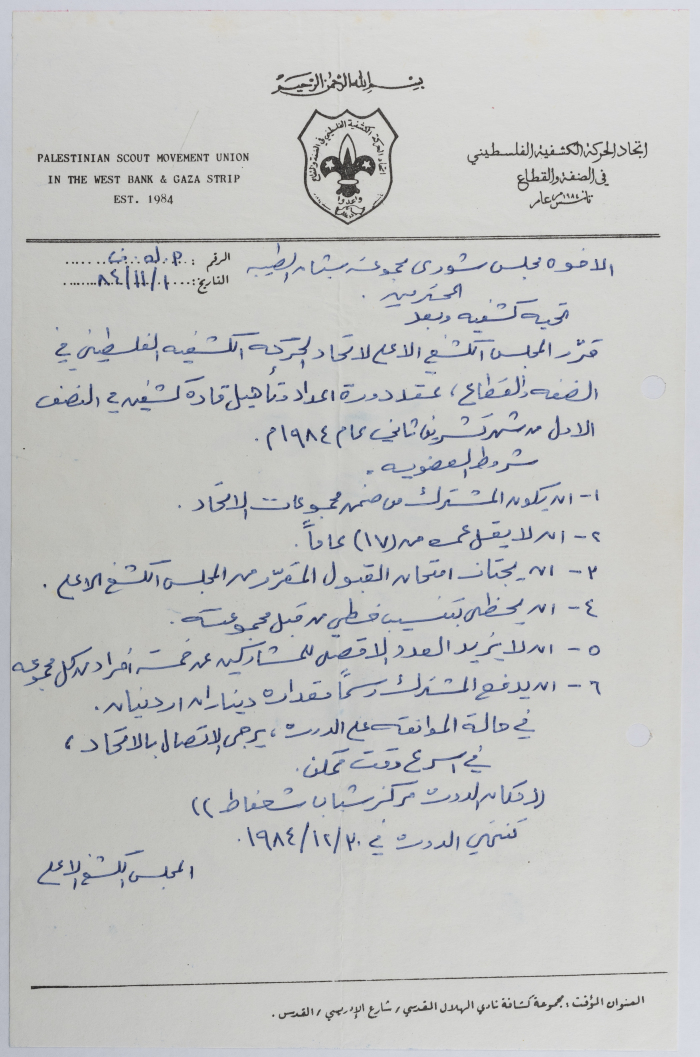 بسم الله الرحمن الرحيم
PALESTINIAN SCOUT MOVEMENT UNION
IN THE WEST BANK & GAZA STRIP
EST. 1984
اتحاد الحركة الكشفية الفلسطيني
في الضفة والقطاع
تأسس عام ١٩٨٤م
اتحاد الحركة الكشفية الفلسطيني في الضفة والقطاع
وأعدوا
الرقم :
التاريخ: ١/١١/٨٤
الاخوة مجلس شورى مجموعة شبان الطيبه
المحترمين .
تحيه كشفيه وبعد
قرّر المجلس الكشفي الاعلى لاتحاد الحركة الكشفيه الفلسطيني في
الضفه والقطاع، عقد دورة اعداد وتأهيل قادة كشفيين في النصف
الاول من شهر تشرين ثاني عام ١٩٨٤م.
شروط العضويه .
١- ان يكون المشترك من ضمن مجموعات الاتحاد .
٢- ان لا يقل عمره من (١٧) عاماً.
٣- ان يجتاز امتحان القبول المقرّر من المجلس الكشفي الاعلى .
٤- ان يحظى بتنسيب خطي من قبل مجموعته.
٥- ان لا يزيد العدد الاقصى للمشاركين عن خمسة أفراد من كل مجموعه
٦- ان يدفع المشترك رسماً مقداره ديناران اردنيان.
في حالة الموافقه على الدوره، يرجى الاتصال بالاتحاد،
في اسرع وقت ممكن.
((مكان الدوره مركز شباب شعفاط))
تنتهي الدوره في ٣٠/١٢/١٩٨٤.
المجلس الكشفي الاعلى
العنوان المؤقت : مجموعة كشافة نادي الهلال القدسي / شارع الإدريسي / القدس .